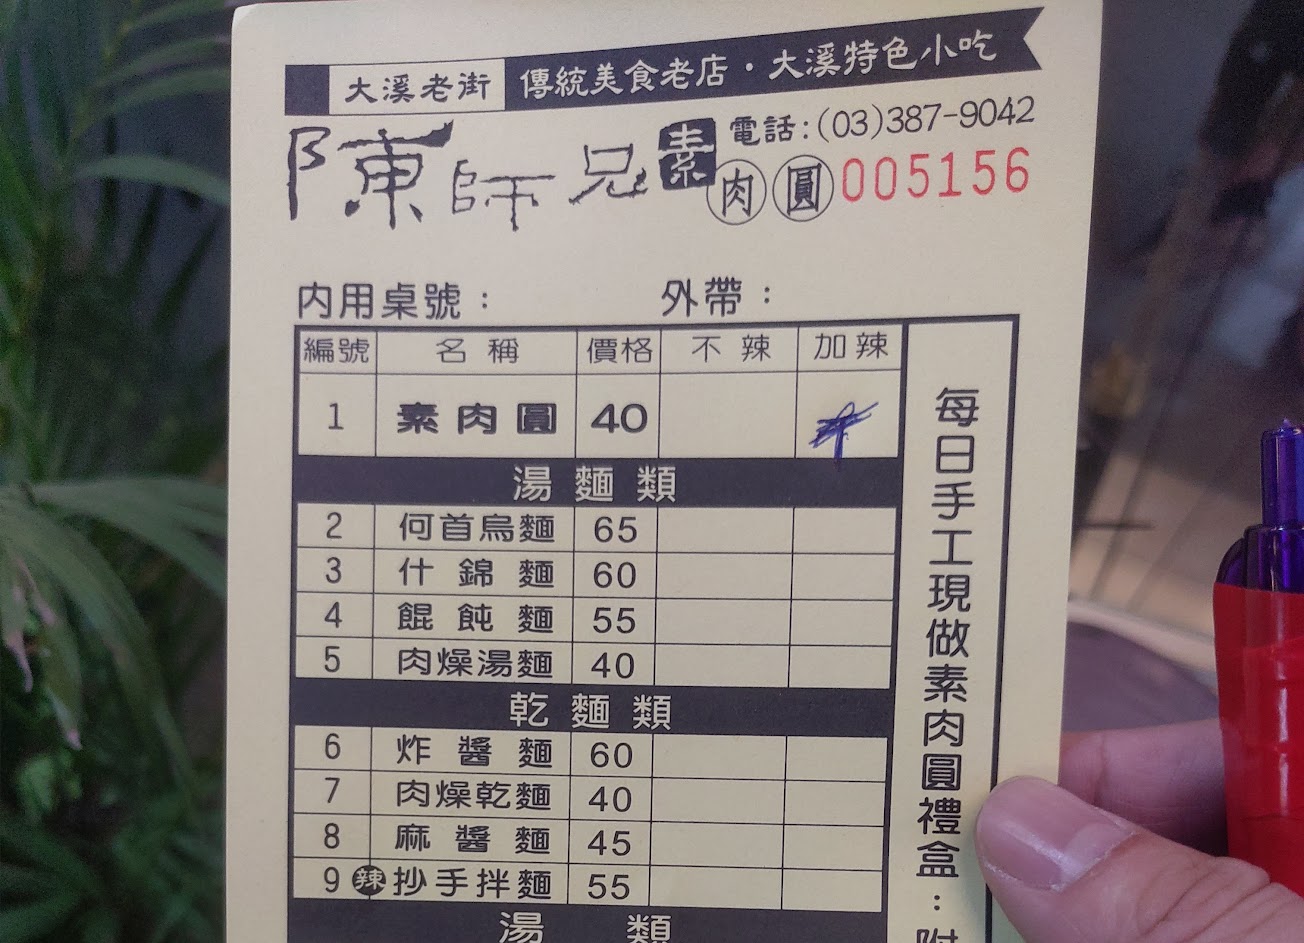 大溪老街 傳統美食老店・大溪特色小吃
陳師兄素肉圓 電話:(03)387-9042
005156
內用桌號： 外帶：
編號 名稱 價格 不辣 加辣
1 素肉圓 40
湯麵類
2 何首烏麵 65
3 什錦麵 60
4 餛飩麵 55
5 肉燥湯麵 40
乾麵類
6 炸醬麵 60
7 肉燥乾麵 40
8 麻醬麵 45
9 辣 抄手拌麵 55
湯類
每日手工現做素肉圓禮盒：附